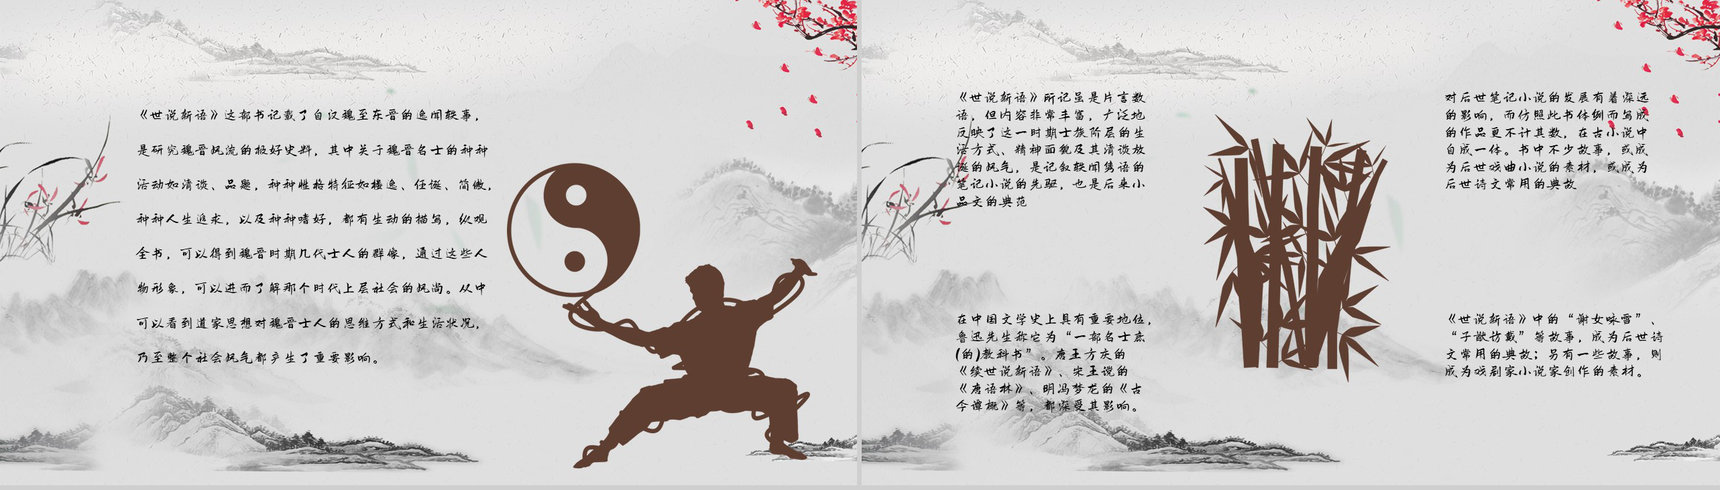 《世说新语》这部书记载了自汉魏至东晋的逸闻轶事，
是研究魏晋风流的极好史料，其中关于魏晋名士的种种
活动如清谈、品题，种种性格特征如栖逸、任诞、简傲，
种种人生追求，以及种种嗜好，都有生动的描写，纵观
全书，可以得到魏晋时期几代士人的群像，通过这些人
物形象，可以进而了解那个时代上层社会的风尚。从中
可以看到道家思想对魏晋士人的思维方式和生活状况，
乃至整个社会风气都产生了重要影响。
《世说新语》所记虽是片言数
语，但内容非常丰富，广泛地
反映了这一时期士族阶层的生
活方式、精神面貌及其清谈放
诞的风气，是记叙轶闻隽语的
笔记小说的先驱，也是后来小
品文的典范
在中国文学史上具有重要地位，
鲁迅先生称它为“一部名士底
(的)教科书”。唐王方庆的
《续世说新语》、宋王谠的
《唐语林》、明冯梦龙的《古
今谭概》等，都深受其影响。
对后世笔记小说的发展有着深远
的影响，而仿照此书体例而写成
的作品更不计其数，在古小说中
自成一体。书中不少故事，或成
为后世戏曲小说的素材，或成为
后世诗文常用的典故
《世说新语》中的“谢女咏雪”、
“子猷访戴”等故事，成为后世诗
文常用的典故；另有一些故事，则
成为戏剧家小说家创作的素材。